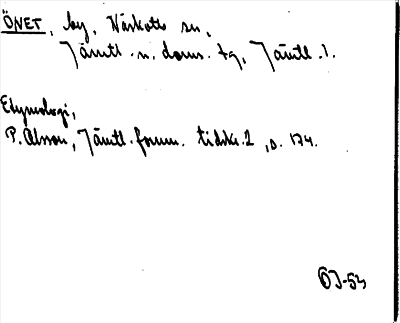 ÖNET, by, Näskotts sn,
Jämtl. n. doms. tg, Jämtl. l.
Etymologi,
P. Olsson, Jämtl. fornm. tidskr. 2, s. 174.
ÖJ-53